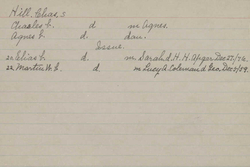 Hill, Elias, 3
Charles L. d. m Agnes.
Agnes L. d. dau.
Issue.
21 Elias L. d. m. Sarah D. H. H. Apgar Dec 27/74.
22 Martin W. L. d. m. Lucy A. Coleman d Geo. Dec 5/89.